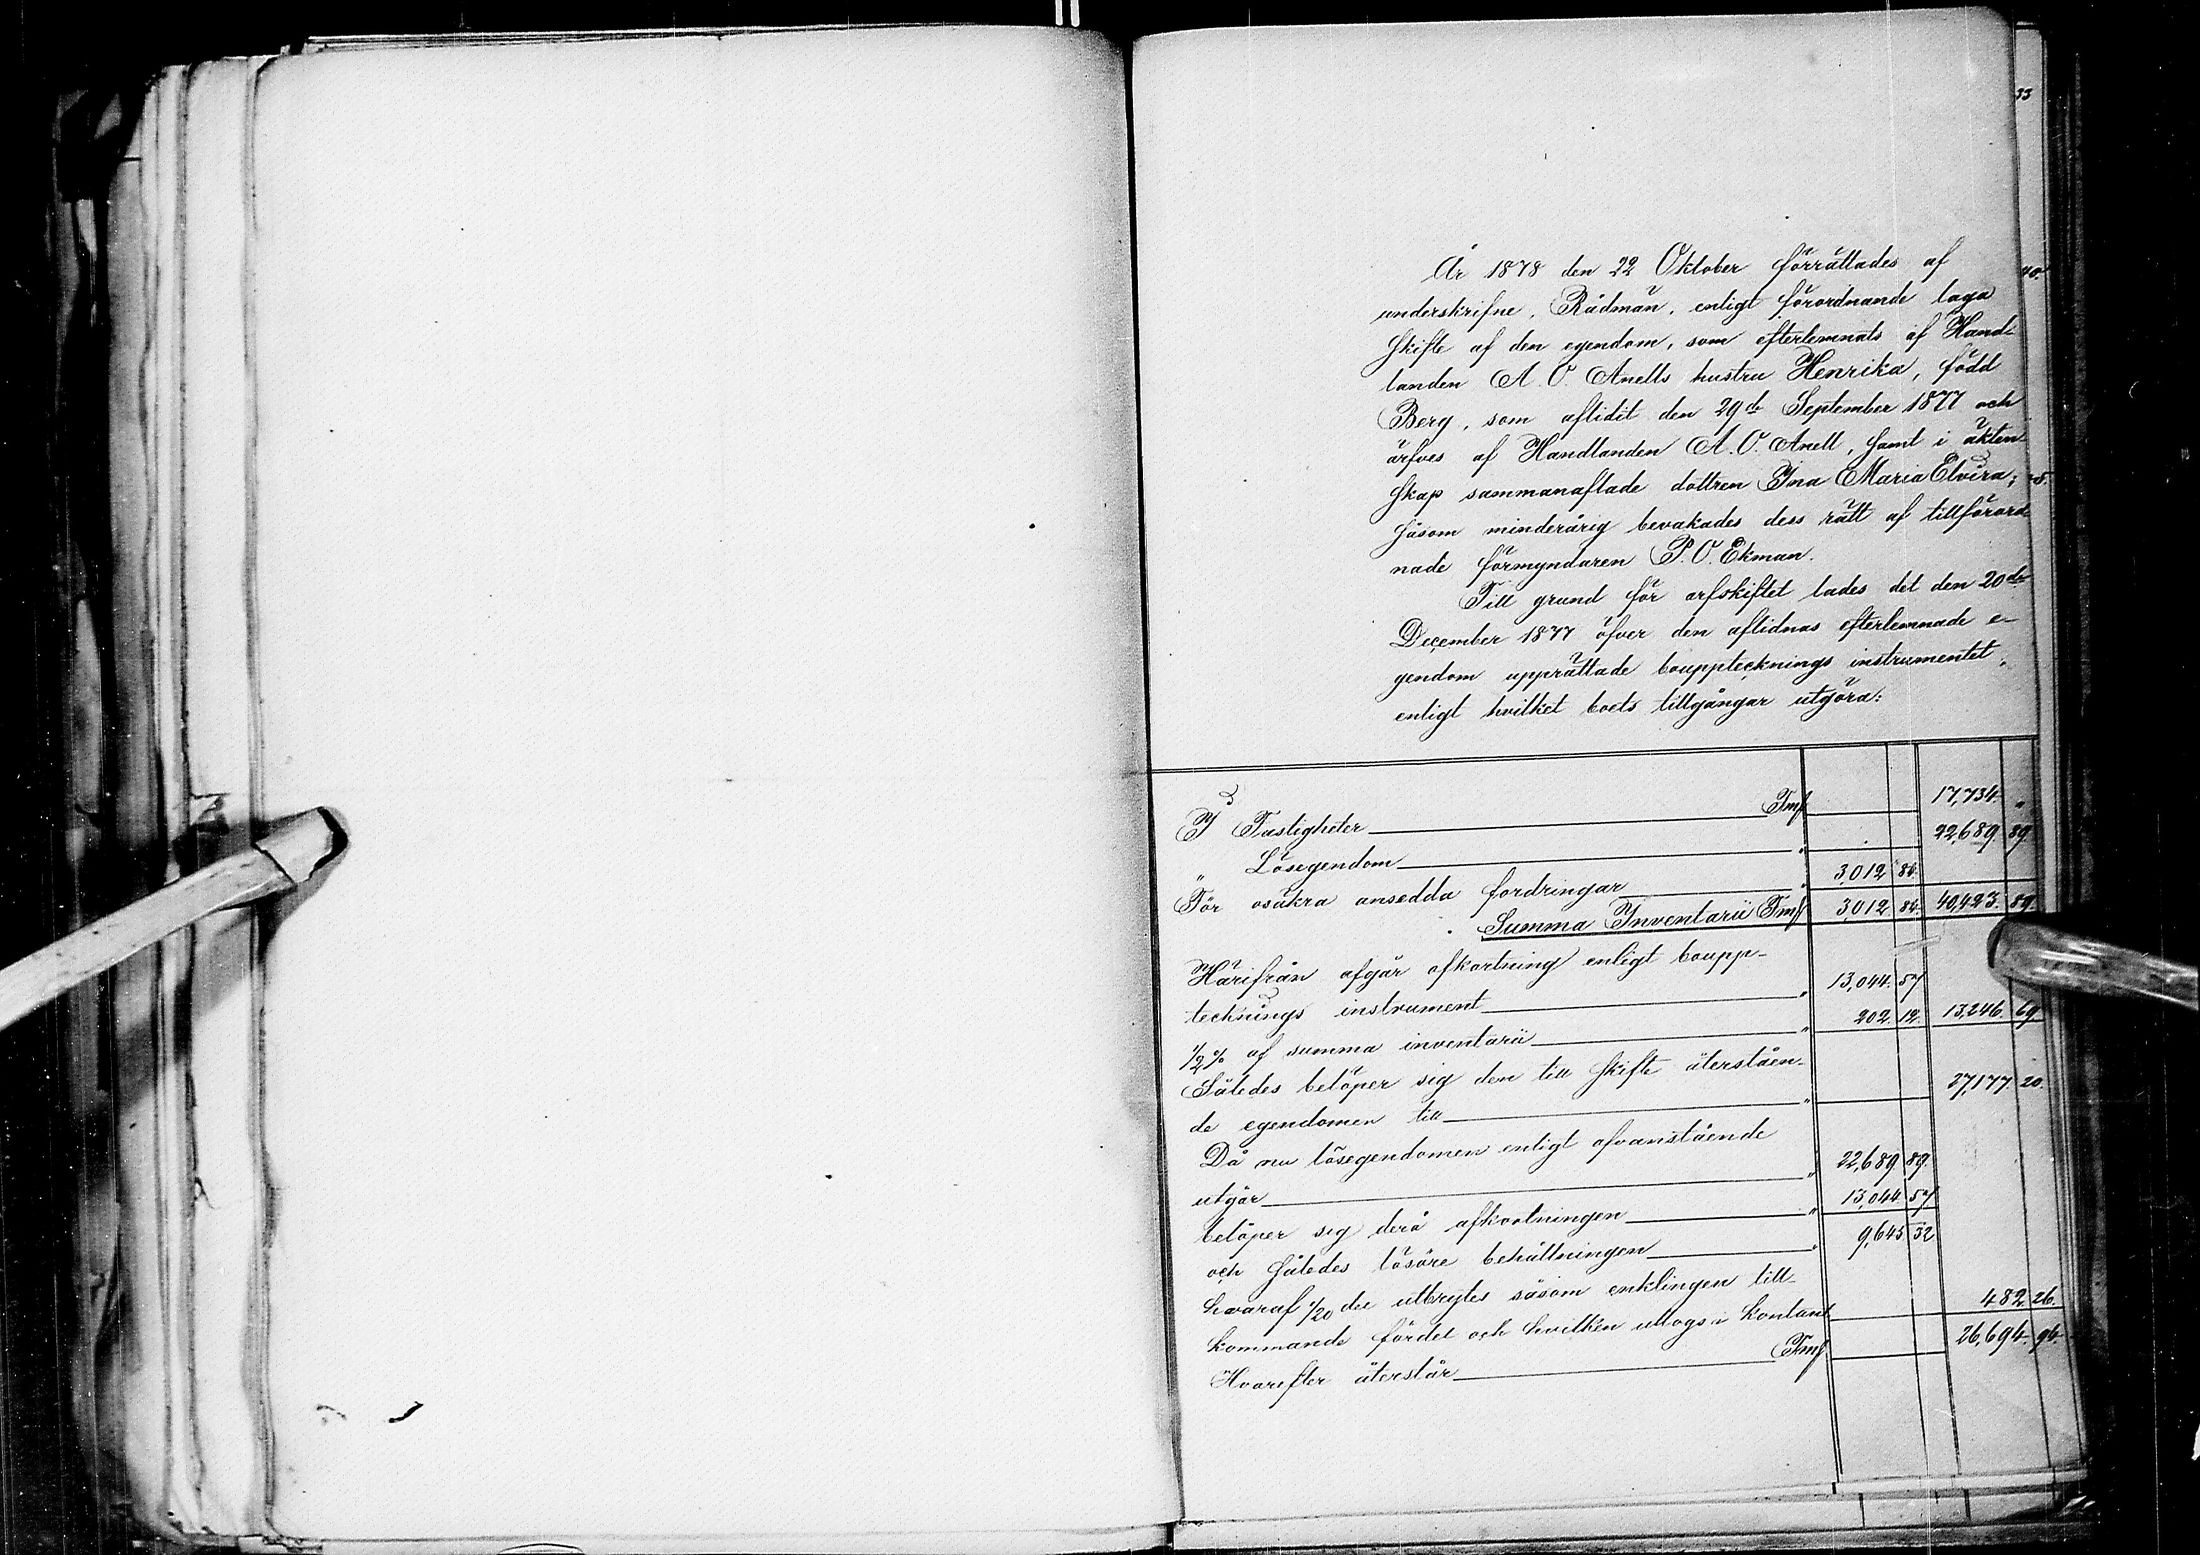 33
År 1878 den 22 Oktober förrättades af
40.
underskrifne, Rådmän, enligt förordnande laga
skifte af den egendom, som efterlemnats af Hand-
landen A. O. Anells hustru Henrika, född
Berg, som aflidit den 29de September 1877 och
ärfves af Handlanden A. O. Anell, samt i äkten
skap sammanaflade dottren Ina Maria Elvira;
såsom minderårig bevakades dess rätt af tillförord
nade förmyndaren P. O. Ekman.
Till grund för arfskiftet lades det den 20de
December 1877 öfver den aflidnas efterlemnade e-
gendom upprättade bouppteckningsinstrumentet,
enligt hvilket boets tillgångar utgöra:
I Fastigheter Fmf 17,734. "
" Lösegendom " 22,689. 89.
För osäkra ansedda fordringar " 3,012. 84.
Summa Inventarii Fmf 3,012. 84. 40,423. 89.
Härifrån afgår afkortning enligt boupp-
tecknings instrument " 13,044. 57
1/2 % af summa inventarii " 202. 12. 13,246. 69.
Således belöper sig den till skifte återståen-
de egendomen till " 27,177. 20.
Då nu lösegendomen enligt ofvanstående
utgör " 22,689. 89.
belöper sig derå afkortningen " 13,044. 57.
och således lösöre behållningen " 9,645 32
hvaraf 1/20 del utbrytes såsom enklingen till-
kommande fördel och hvilken uttogs i kontant 482. 26.
Hvarefter återstår Fmf 26,694. 94.